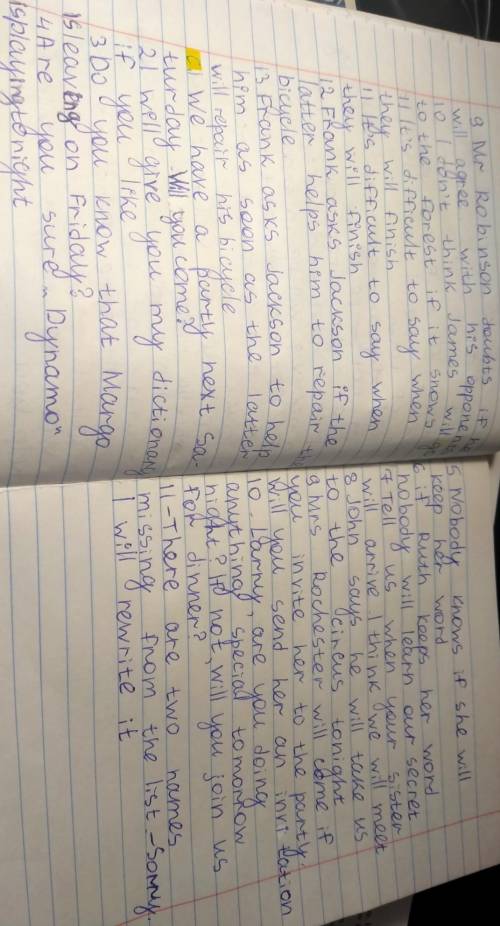 9 Mr Robinson doubts if he
will agree with his opponents
10 I don't think James will
to the forest if it snows
11 It's difficult to say when
they will finish
11 It's difficult to say when
they will finish
12 Frank asks Jackson if the
latter helps him to repair the
bicycle
13 Frank asks Jackson to help
him as soon as the latter
will repair his bicycle
1 We have a party next Sa-
turday. Will you come?
2 I will give you my dictionary
if you like
3 Do you know that Margo
is leaving on Friday?
4 Are you sure "Dynamo"
is playing tonight
5 Nobody knows if she will
keep her word
6 if Ruth keeps her word
nobody will learn our secret
7 Tell us when your sister
will arrive. I think we will meet
8 John says he will take us
to the circus tonight
9 Mrs Rochester will come if
you invite her to the party.
Will you send her an invitation
10 Larry, are you doing
anything special tomorrow
night? If not, will you join us
for dinner?
11 -There are two names
missing from the list -Sorry.
I will rewrite it